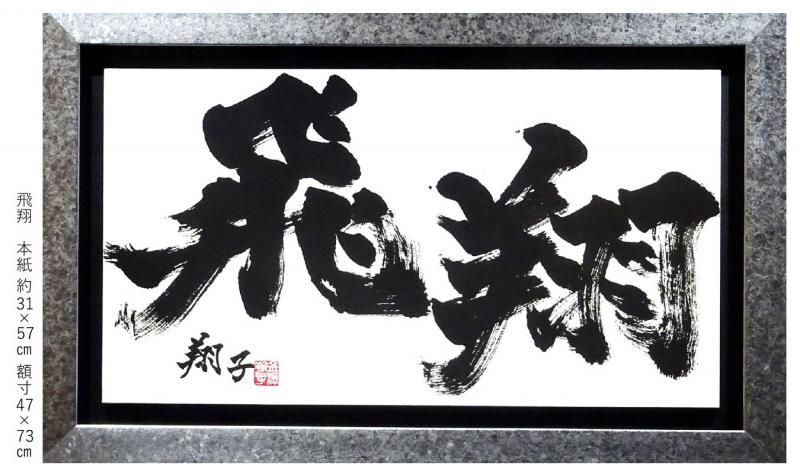 飛翔
翔子
飛翔 本紙 約31×57㎝ 額寸47×73㎝